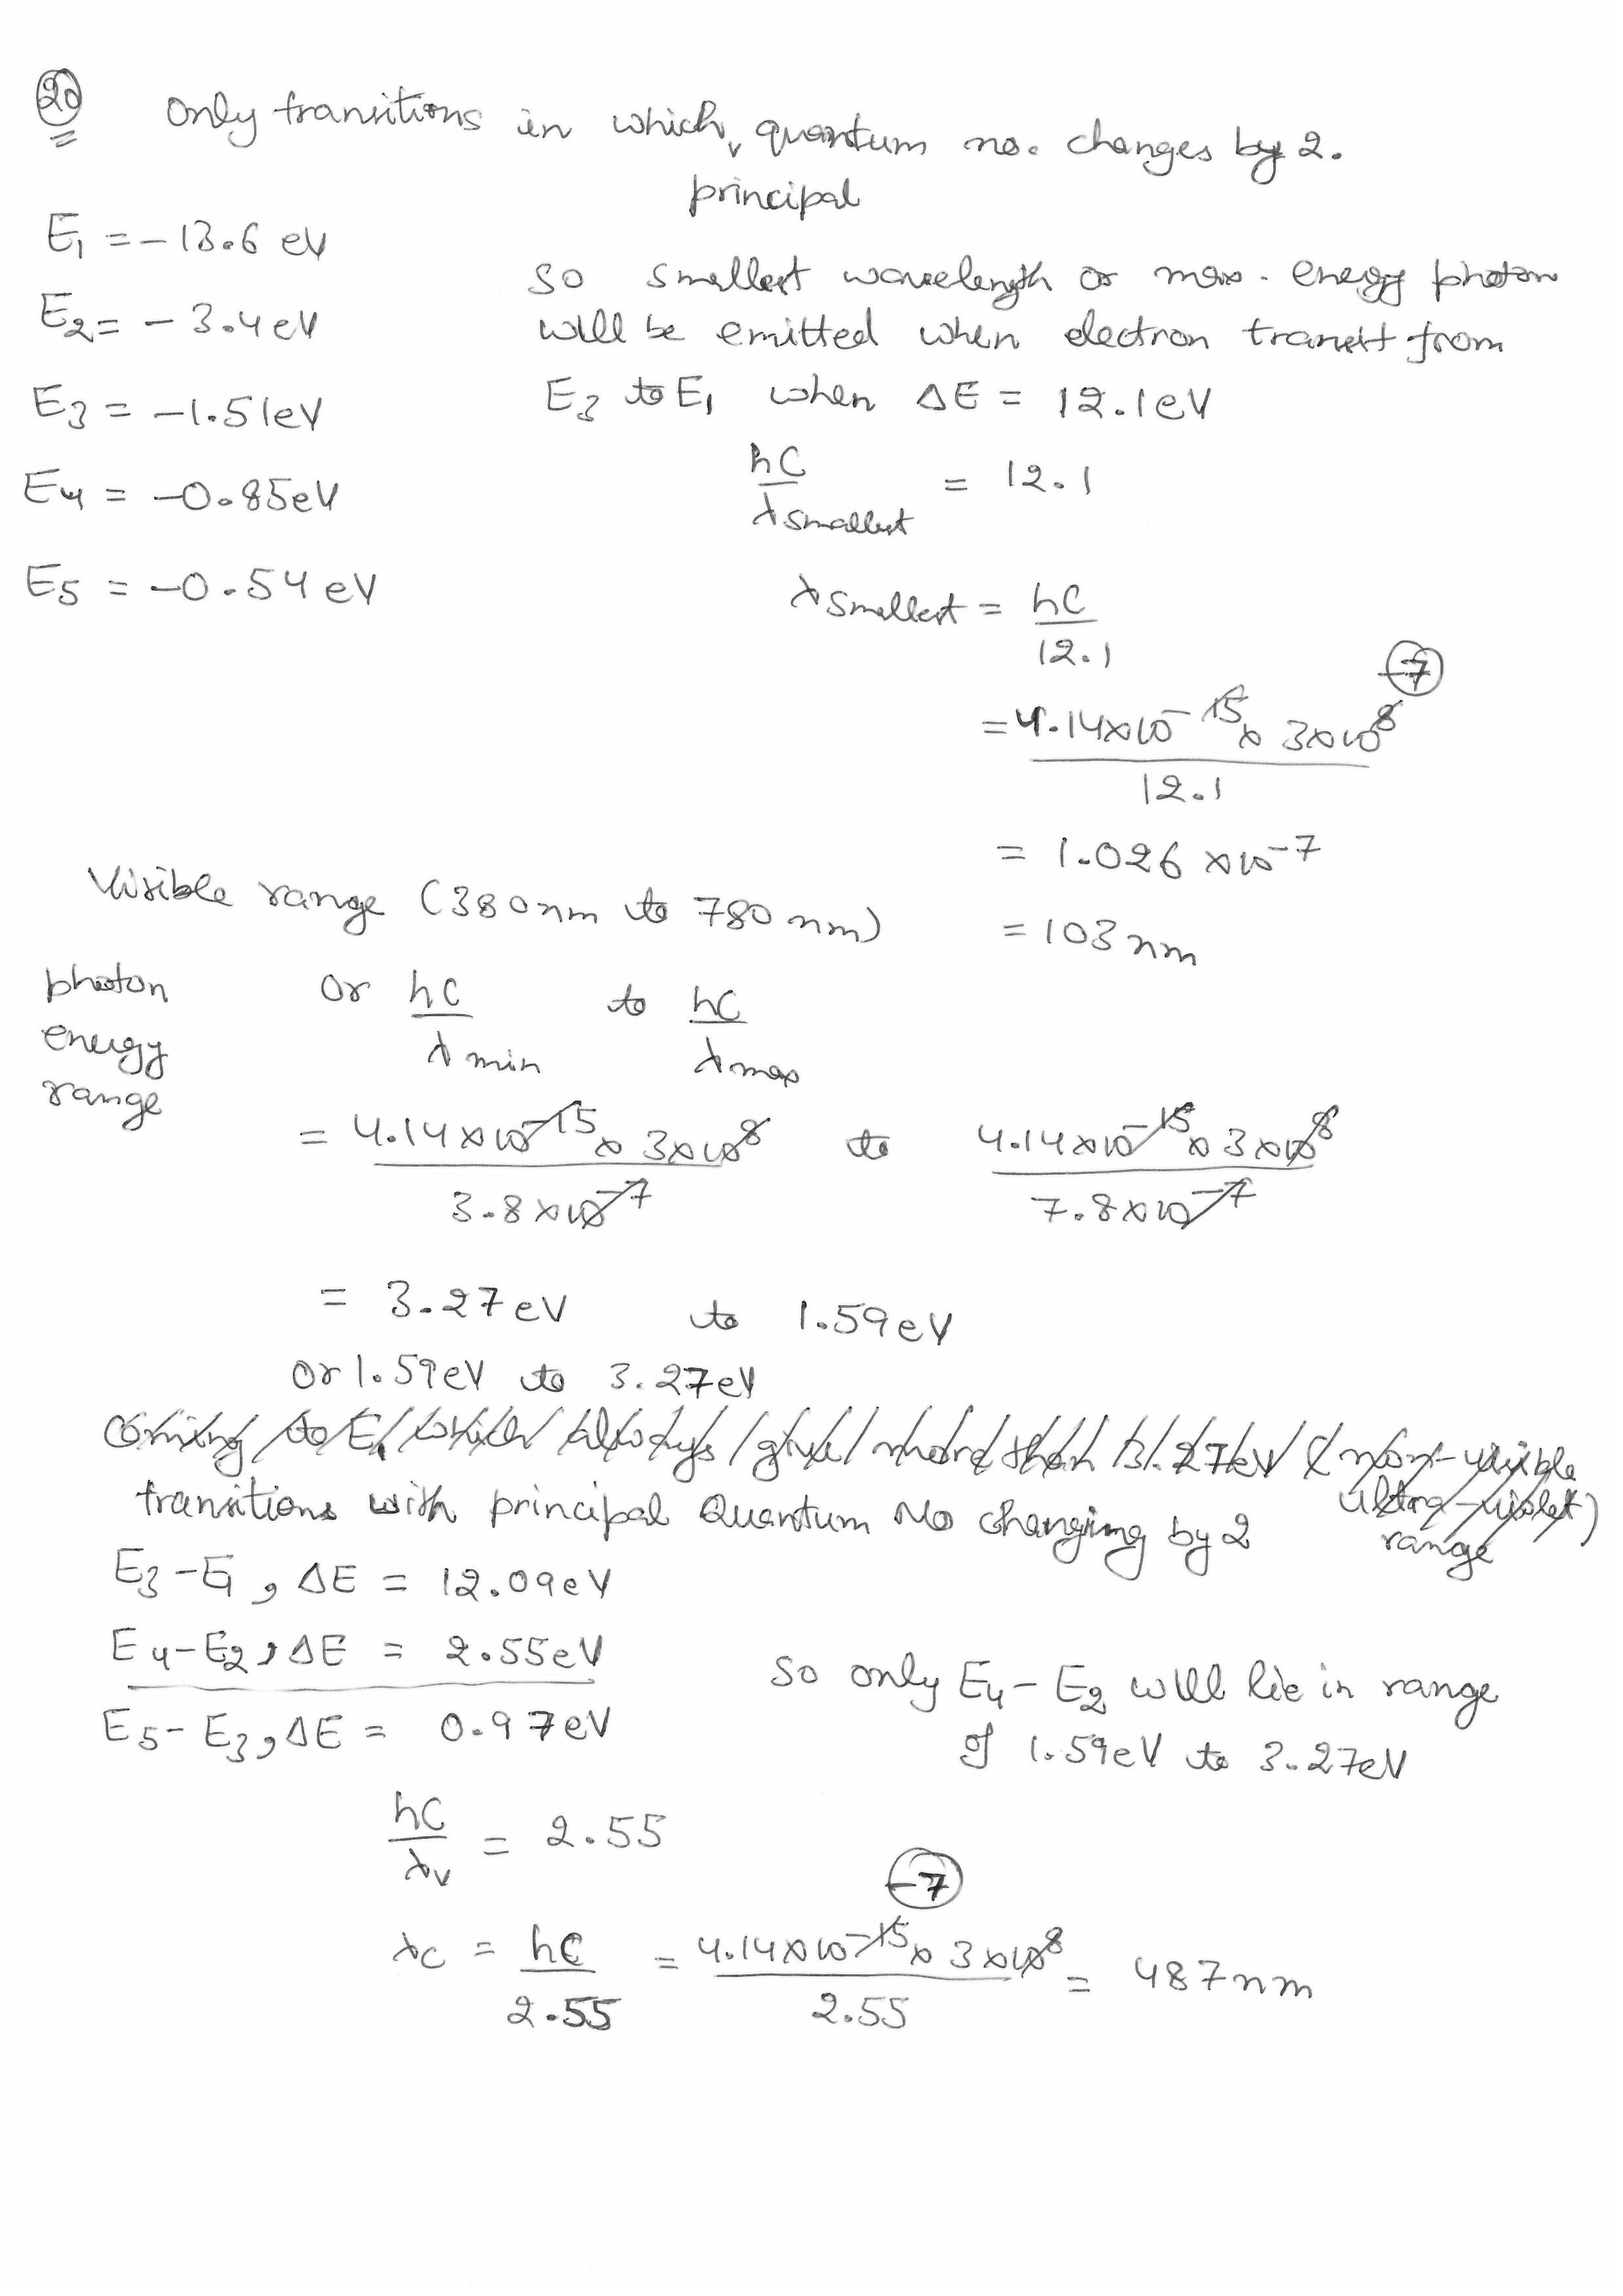 20 Only transitions in which, quantum no. changes by 2.
principal
E₁ = -13.6 eV
E₂ = -3.4 eV
E₃ = -1.51eV
E₄ = -0.85eV
E₅ = -0.54 eV
So smallest wavelength or max. energy photon
will be emitted when electron transit from
E₃ to E₁ when ΔE = 12.1eV
hC/λsmallest = 12.1
λsmallest = hC/12.1
= 4.14×10⁻¹⁵ × 3×10⁸ / 12.1 -7
= 1.026 ×10⁻⁷
= 103 nm
Visible range (380nm to 780 nm)
photon energy range or hC/λmin to hC/λmax
= 4.14×10⁻¹⁵ × 3×10⁸ / 3.8×10⁻⁷ to 4.14×10⁻¹⁵ × 3×10⁸ / 7.8×10⁻⁷
= 3.27eV to 1.59eV
Or 1.59eV to 3.27eV
Coming to E₁ which always give more than 3.27eV (non-visible
ultra-violet)
range
transitions with principal Quantum No changing by 2
E₃-E₁, ΔE = 12.09eV
E₄-E₂, ΔE = 2.55eV
E₅-E₃, ΔE = 0.97eV
So only E₄-E₂ will lie in range
of 1.59eV to 3.27eV
hC/λv = 2.55
λc = hC/2.55 = 4.14×10⁻¹⁵ × 3×10⁸ / 2.55 = 487nm
-7